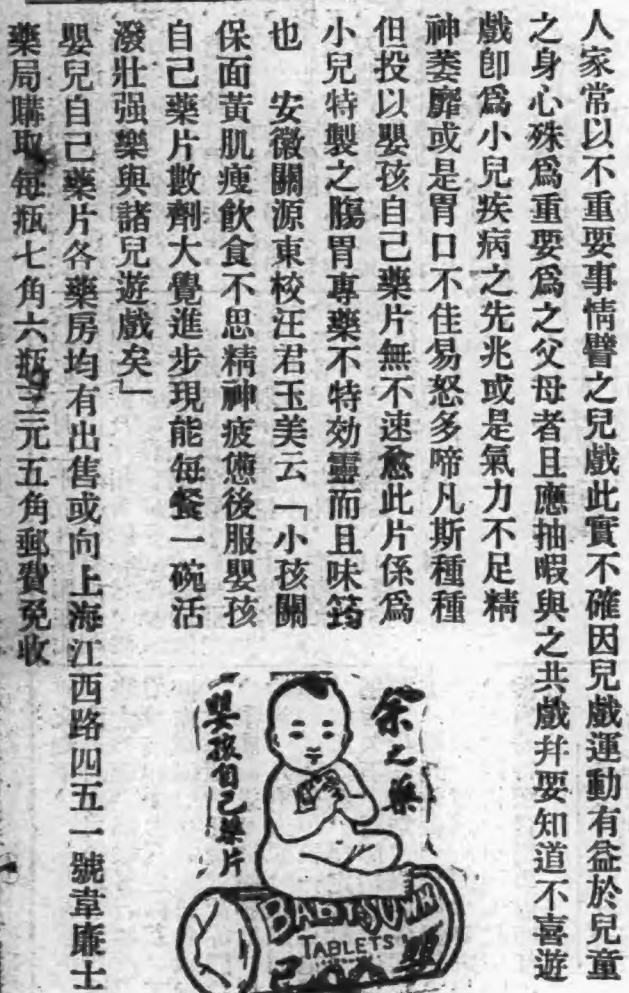 人家常以不重要事情譬之兒戲此實不確因兒戲運動有益於兒童
之身心殊爲重要爲之父母者且應抽暇與之共戲幷要知道不喜遊
戲卽爲小兒疾病之先兆或是氣力不足精
神萎靡或是胃口不佳易怒多啼凡斯種種
但投以嬰孩自己藥片無不速愈此片係爲
小兒特製之腸胃專藥不特効靈而且味
也　安徽關源東校汪君玉美云「小孩關
保面黃肌瘦飲食不思精神疲憊後服嬰孩
自己藥片數劑大覺進步現能每餐一碗活
潑壯强樂與諸兒遊戲矣」
嬰兒自己藥片各藥房均有出售或向上海江西路四五一號韋廉士
藥局購取每瓶七角六瓶三元五角郵費免收
余之藥
嬰孩自己藥片
BABY'S OWN
TABLETS